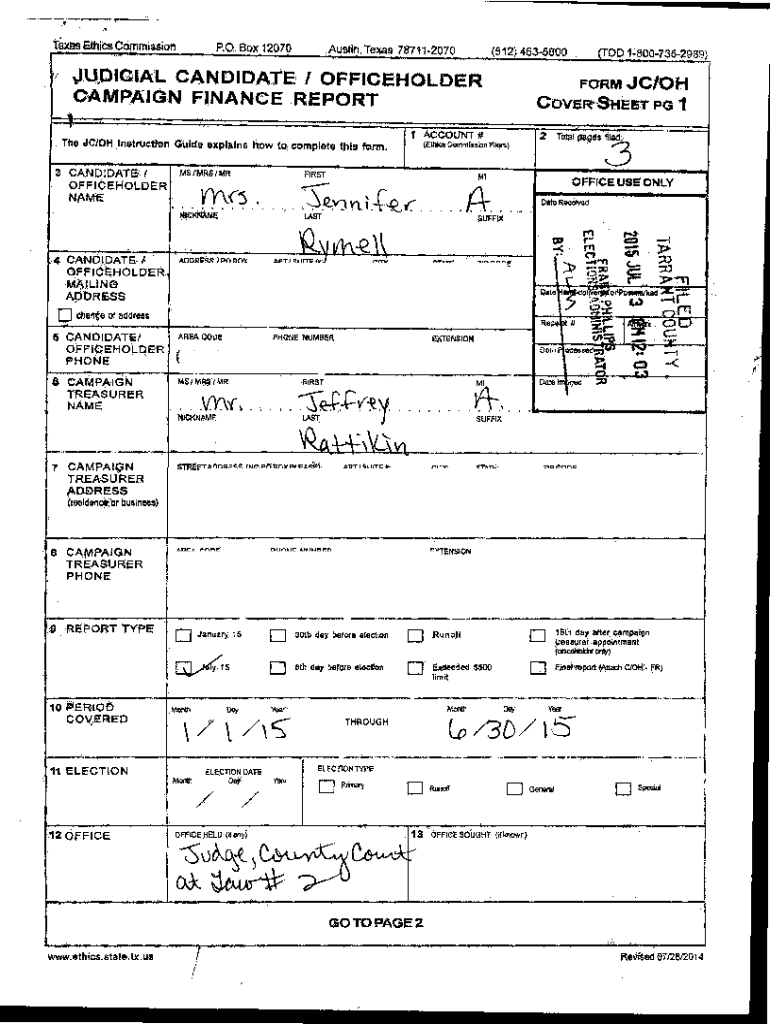 Texas Ethics Commission P.O. Box 12070 Austin, Texas 78711-2070 (512) 463-5800 (TDD 1-800-735-2989)
JUDICIAL CANDIDATE / OFFICEHOLDER
CAMPAIGN FINANCE REPORT
FORM JC/OH
COVER SHEET PG 1
The JC/OH Instruction Guide explains how to complete this form.
1 ACCOUNT #
(Ethics Commission filers)
2 Total pages filed:
3
3 CANDIDATE /
OFFICEHOLDER
NAME
MS / MRS / MR FIRST MI
Mrs. Jennifer A
NICKNAME LAST SUFFIX
Rymell
OFFICE USE ONLY
Date Received
FILED
TARRANT COUNTY
2015 JUL 3 PM 12: 03
FRANK PHILLIPS
ELECTIONS ADMINISTRATOR
BY:
Date Hand-delivered or Postmarked
Receipt # Amount
Date Processed
Date Imaged
4 CANDIDATE /
OFFICEHOLDER
MAILING
ADDRESS
change of address
ADDRESS / PO BOX
5 CANDIDATE/
OFFICEHOLDER
PHONE
AREA CODE PHONE NUMBER EXTENSION
(
6 CAMPAIGN
TREASURER
NAME
MS / MRS / MR FIRST MI
Mr. Jeffrey A.
NICKNAME LAST SUFFIX
Rattikin
7 CAMPAIGN
TREASURER
ADDRESS
(residence or business)
8 CAMPAIGN
TREASURER
PHONE
AREA CODE PHONE NUMBER EXTENSION
9 REPORT TYPE
January 15 30th day before election Runoff 15th day after campaign
treasurer appointment
(officeholder only)
July 15 8th day before election Exceeded $500
limit
Final report (Attach C/OH - FR)
10 PERIOD
COVERED
Month Day Year
1/1/15
THROUGH
Month Day Year
6/30/15
11 ELECTION
ELECTION DATE
Month Day Year
/ /
ELECTION TYPE
Primary Runoff General Special
12 OFFICE
OFFICE HELD (if any)
Judge, County Court
at Law # 2
13 OFFICE SOUGHT (if known)
GO TO PAGE 2
www.ethics.state.tx.us Revised 07/28/2014